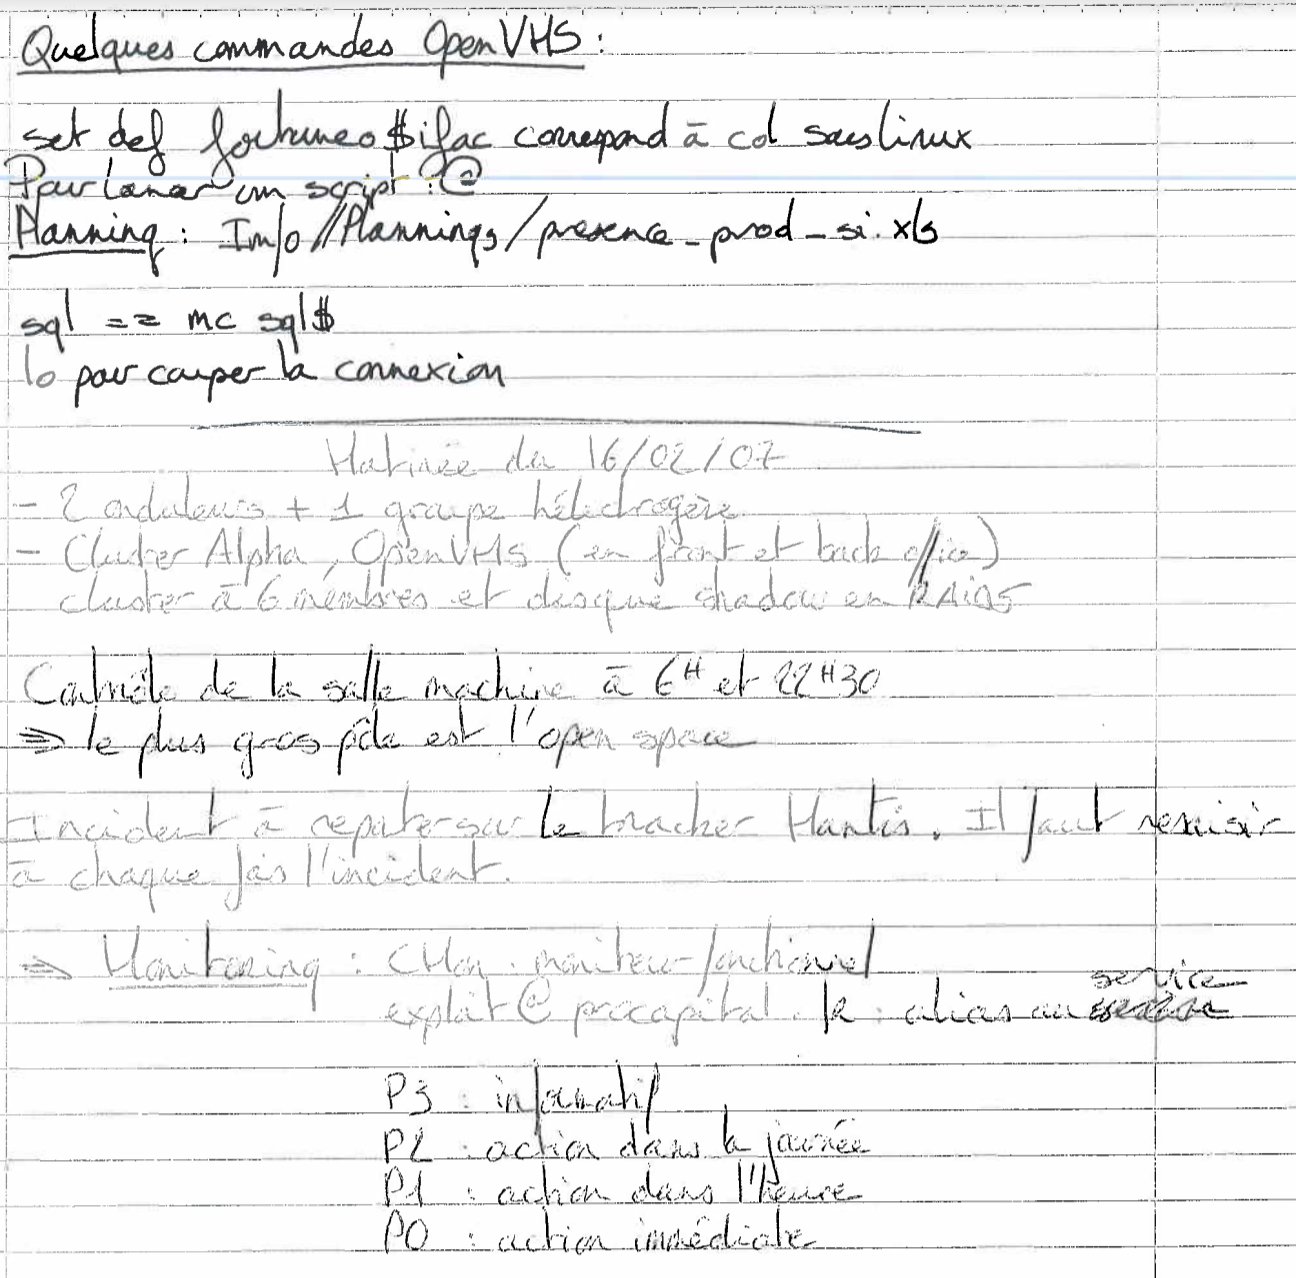 Quelques commandes OpenVMS :
set def fortuneo$ifac correspond à cd sous linux
Pour lancer un script : @
Planning : Info//Plannings/presence_prod_si.xls
sql == mc sql$
lo pour couper la connexion
Matinée du 16/02/07
- 2 onduleurs + 1 groupe héléctrogène
- Cluster Alpha, OpenVMS (en front et back office)
cluster à 6 membres et disque shadow en RAID5
Contrôle de la salle machine à 6H et 22H30
=> le plus gros pôle est l'open space
Incident à reporter sur le tracker Mantis. Il faut resaisir
à chaque fois l'incident.
=> Monitoring : CMon : moniteur fonctionnel
service
exploit@procapital.fr : alias au
P3 : informatif
P2 : action dans la journée
P1 : action dans l'heure
P0 : action immédiate